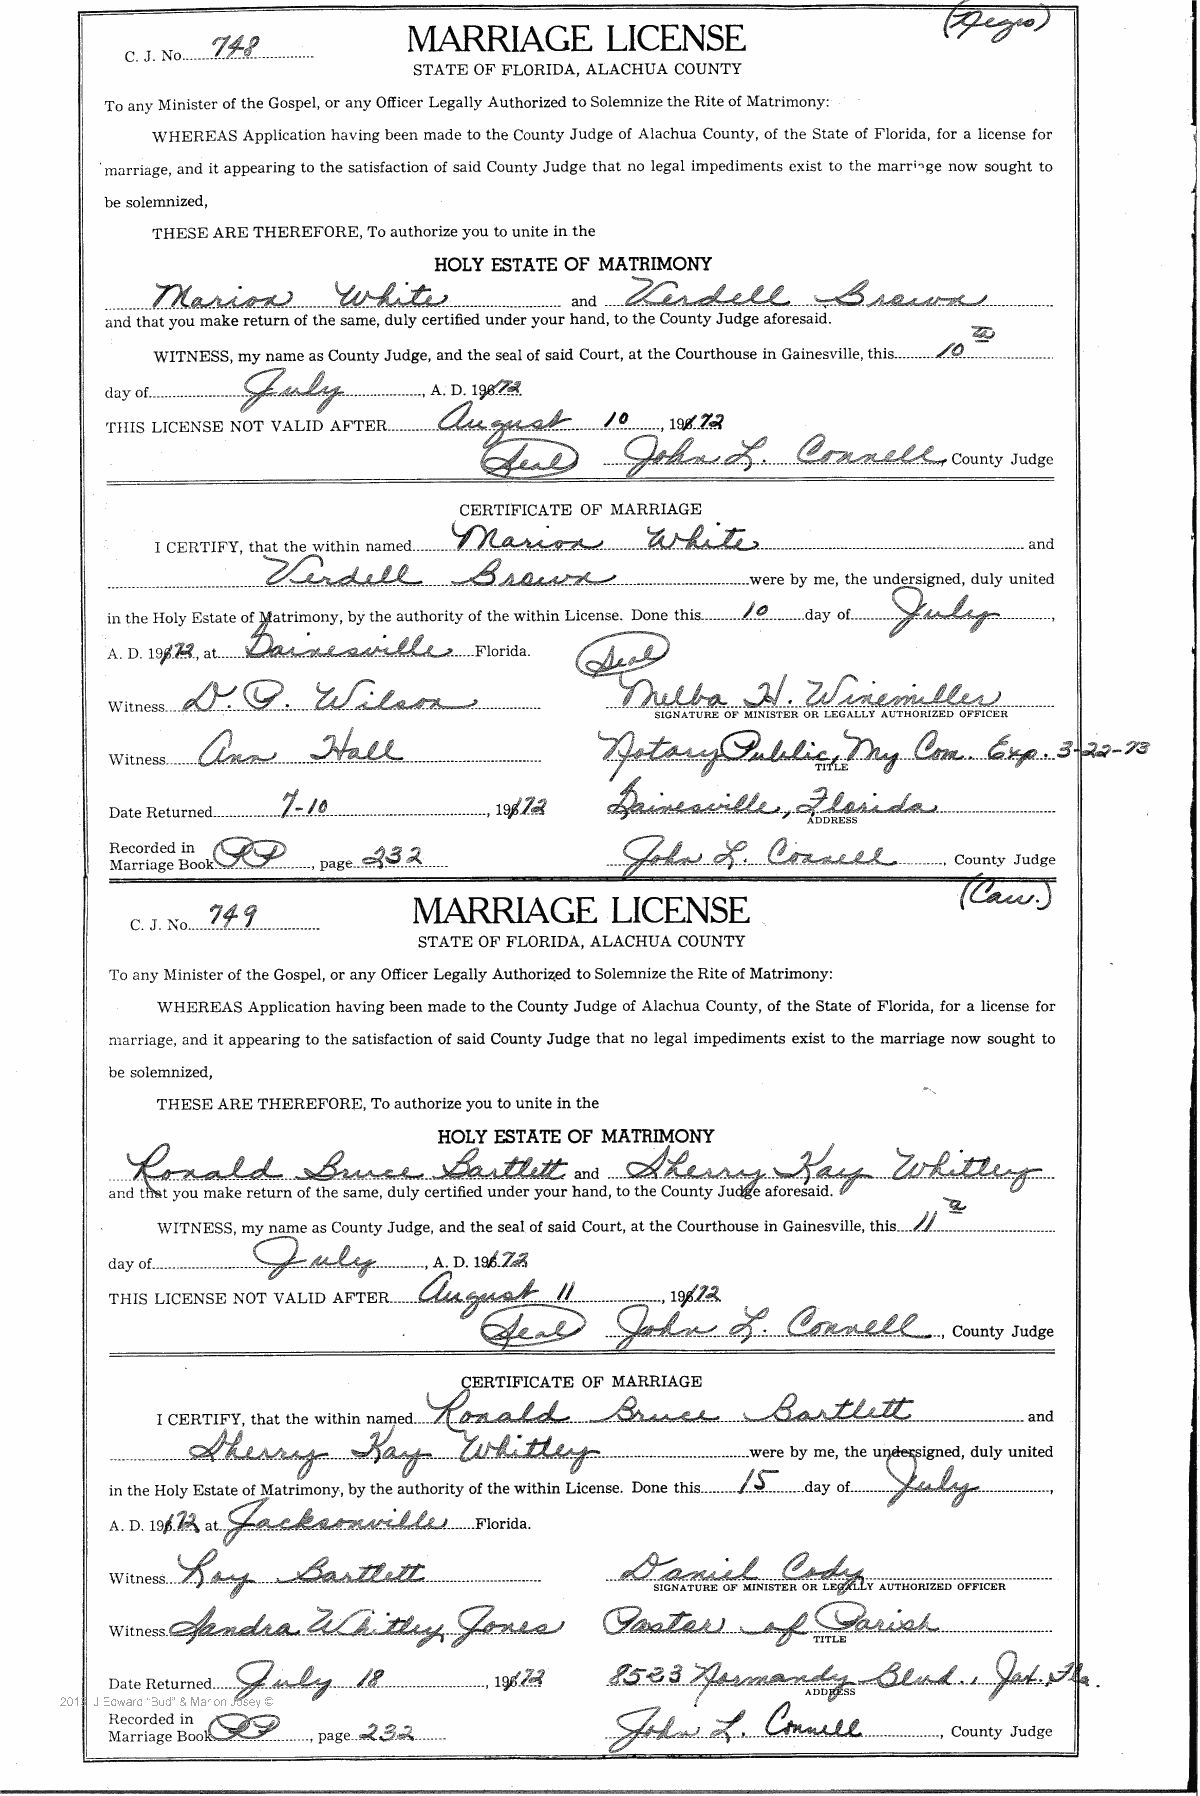 (Negro)
C. J. No. 748
MARRIAGE LICENSE
STATE OF FLORIDA, ALACHUA COUNTY
To any Minister of the Gospel, or any Officer Legally Authorized to Solemnize the Rite of Matrimony:
WHEREAS Application having been made to the County Judge of Alachua County, of the State of Florida, for a license for
marriage, and it appearing to the satisfaction of said County Judge that no legal impediments exist to the marriage now sought to
be solemnized,
THESE ARE THEREFORE, To authorize you to unite in the
HOLY ESTATE OF MATRIMONY
Marion White and Verdell Brown
and that you make return of the same, duly certified under your hand, to the County Judge aforesaid.
WITNESS, my name as County Judge, and the seal of said Court, at the Courthouse in Gainesville, this 10th
day of July, A. D. 1972
THIS LICENSE NOT VALID AFTER August 10, 1972
(Seal) John L. Connell, County Judge
CERTIFICATE OF MARRIAGE
I CERTIFY, that the within named Marion White and
Verdell Brown were by me, the undersigned, duly united
in the Holy Estate of Matrimony, by the authority of the within License. Done this 10 day of July,
A. D. 1972, at Gainesville Florida. (Seal)
Witness D. P. Wilson Melba H. Winemiller
SIGNATURE OF MINISTER OR LEGALLY AUTHORIZED OFFICER
Witness Ann Hall Notary Public, My Com. Exp. 3-22-73
TITLE
Date Returned 7-10, 1972 Gainesville, Florida
ADDRESS
Recorded in
Marriage Book PP, page 232 John L. Connell, County Judge
(Cau.)
C. J. No. 749
MARRIAGE LICENSE
STATE OF FLORIDA, ALACHUA COUNTY
To any Minister of the Gospel, or any Officer Legally Authorized to Solemnize the Rite of Matrimony:
WHEREAS Application having been made to the County Judge of Alachua County, of the State of Florida, for a license for
marriage, and it appearing to the satisfaction of said County Judge that no legal impediments exist to the marriage now sought to
be solemnized,
THESE ARE THEREFORE, To authorize you to unite in the
HOLY ESTATE OF MATRIMONY
Ronald Bruce Bartlett and Sherry Kay Whitley
and that you make return of the same, duly certified under your hand, to the County Judge aforesaid.
WITNESS, my name as County Judge, and the seal of said Court, at the Courthouse in Gainesville, this 11th
day of July, A. D. 1972
THIS LICENSE NOT VALID AFTER August 11, 1972
(Seal) John L. Connell, County Judge
CERTIFICATE OF MARRIAGE
I CERTIFY, that the within named Ronald Bruce Bartlett and
Sherry Kay Whitley were by me, the undersigned, duly united
in the Holy Estate of Matrimony, by the authority of the within License. Done this 15 day of July,
A. D. 1972 at Jacksonville Florida.
Witness Ray Bartlett Daniel Cody
SIGNATURE OF MINISTER OR LEGALLY AUTHORIZED OFFICER
Witness Sandra Whitley Jones Pastor of Parish
TITLE
Date Returned July 18, 1972 8523 Normandy Blvd., Jax. Fla.
ADDRESS
J Edward "Bud" & Marion Josey ©
Recorded in
Marriage Book PP, page 232 John L. Connell, County Judge